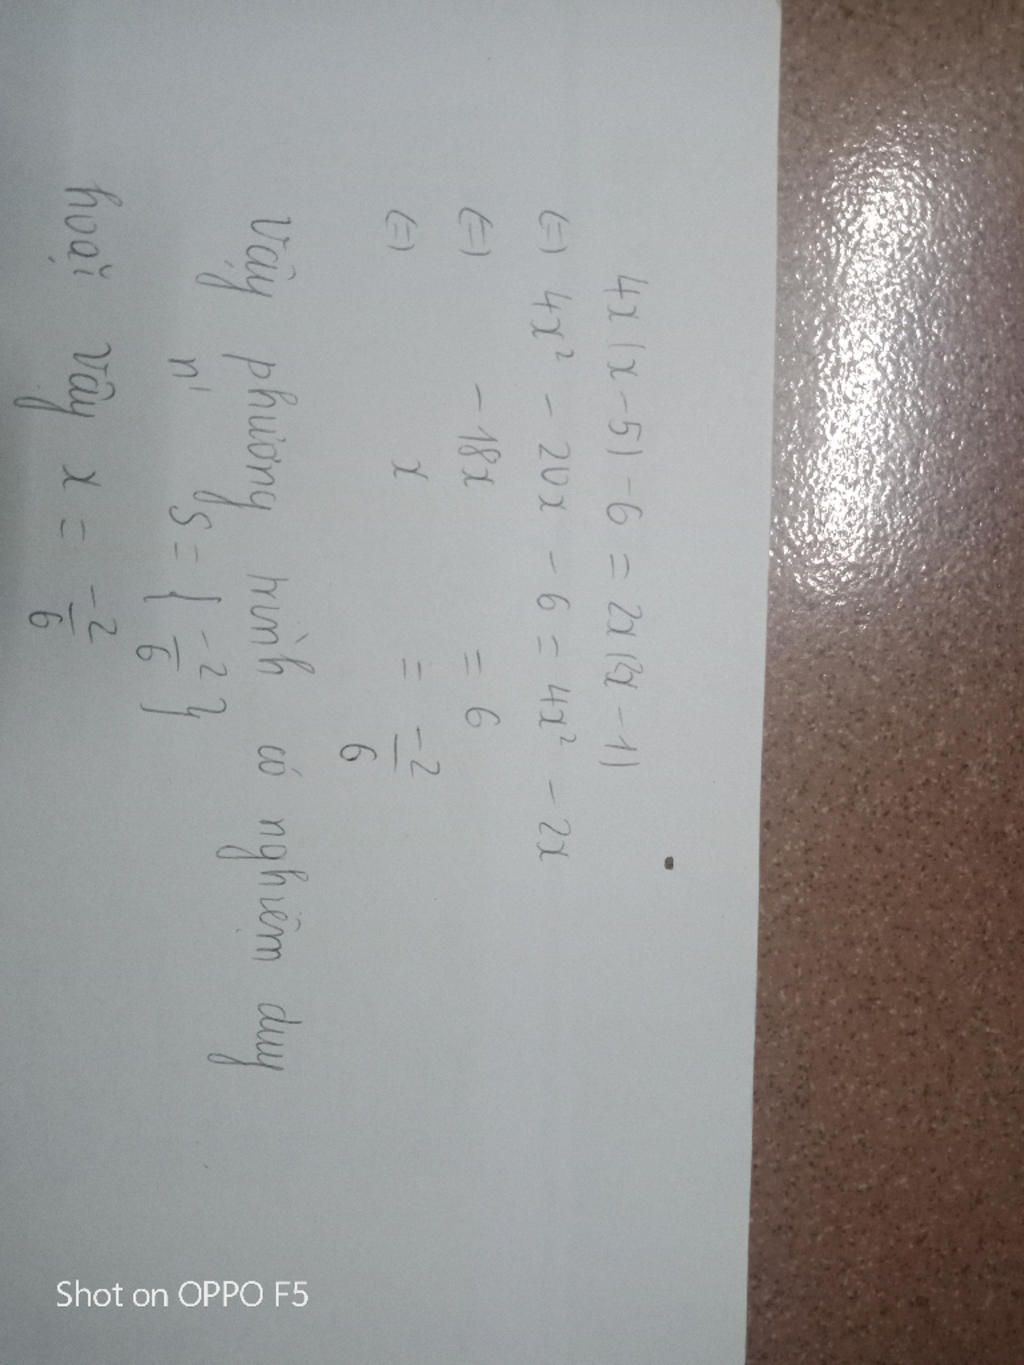 4x(x-5)-6 = 2x(2x-1)
(=) 4x² - 20x - 6 = 4x² - 2x
(=) -18x = 6
(=) x = -2/6
Vậy phương trình có nghiệm duy
n' S = { -2/6 }
hoặc Vậy x = -2/6
Shot on OPPO F5